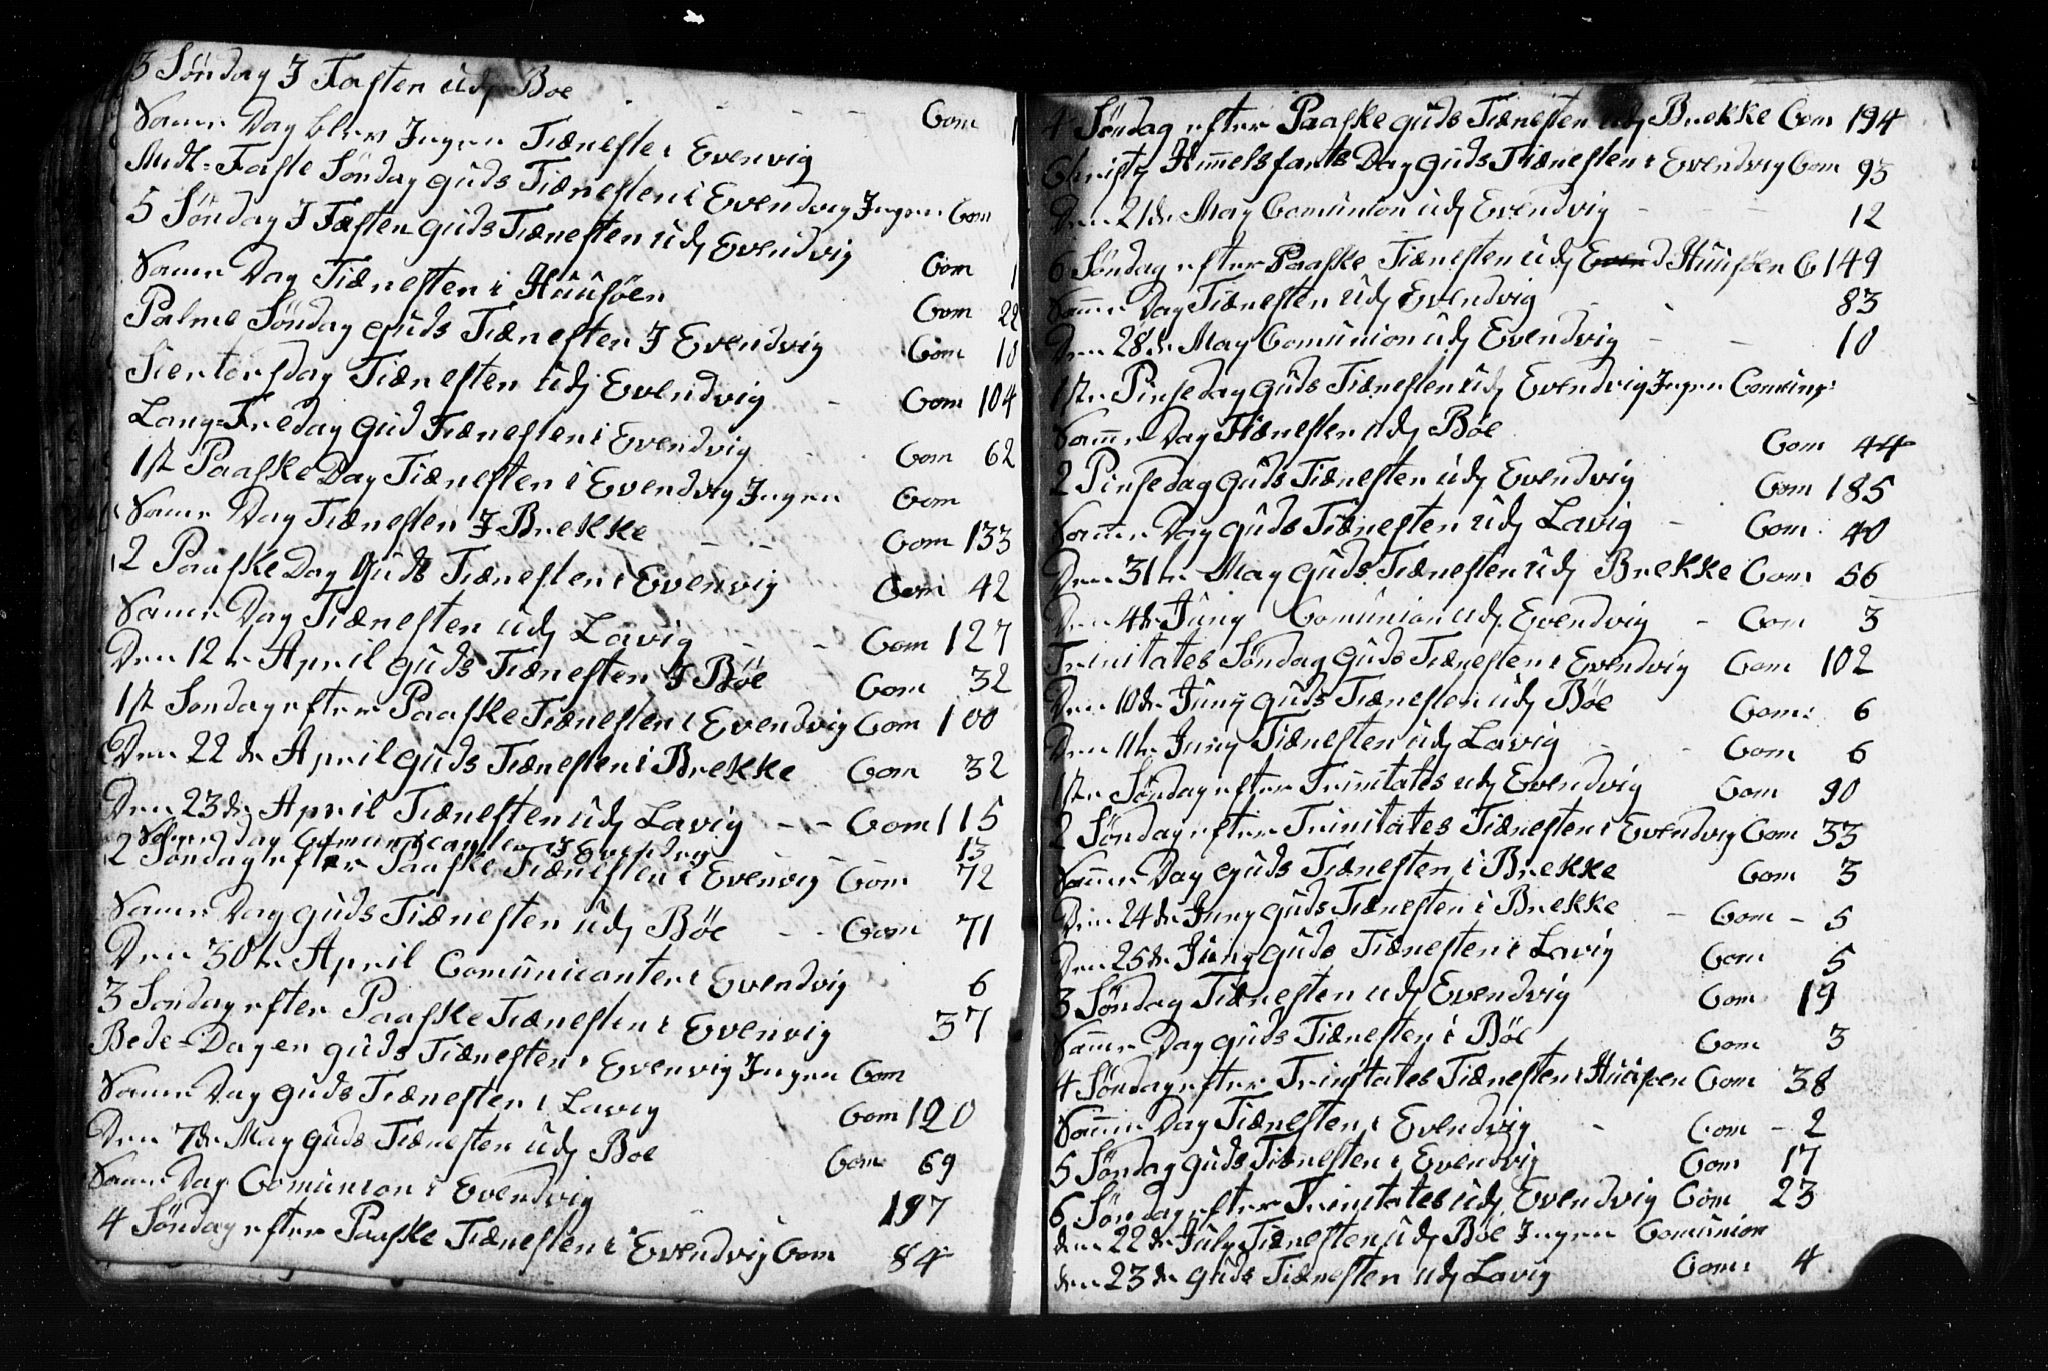 3 Søndag I Fasten udj Bøe - - - - Com 1
Samme Dag blev Ingen Tiæneste i Evenvig
Midt-Faste Søndag Guds Tiænesten i Evendvig Ingen Com
5 Søndag I Fasten Guds Tiænesten udj Evendvig Com 1
Samme Dag Tiænesten i Huusøen Com 22
Palme Søndag Guds Tiænesten I Evendvig Com 10
Siertorsdag Tiænesten udj Evendvig - Com 104
Lang-Fredag Gud Tiænesten i Evendvig - - Com 62
1ste Paaske Dag Tiænesten i Evendvig Ingen Com
Samme Dag Tiænesten I Brekke - - Com 133
2 Paaske Dag Guds Tiænesten i Evenvig Com 42
Samme Dag Tiænesten udj Lavig - - Com 127
Den 12te April Guds Tiænesten I Bøe Com 32
1ste Søndag efter Paaske Tiænesten i Evendvig Com 100
Den 22de April Guds Tiænesten i Brekke Com 32
Den 23de April Tiænesten udj Lavig - - Com 115
Samme dag Comunicanter I Evendvig - - - 13
2 Søndag efter Paaske Tiænesten i Evenvig Com 72
Samme Dag Guds Tiænesten udj Bøe - - Com 71
Den 30te April Comunicanter i Evendvig 6
3 Søndag efter Paaske Tiænesten i Evenvig 37
Bede-Dagen Guds Tiænesten i Evenvig Ingen Com
Samme Dag Guds Tiænesten i Lavig Com 120
Den 7de May Guds Tiænesten udj Boe Com 69
Samme Dag Comunion i Evendvig - - 197
4 Søndag efter Paaske Tiænesten i Evendvig Com 84
4 Søndag efter Paaske Guds Tiænesten udj Brekke Com 194
Christj Himmelsfarts Dag Guds Tiænesten i Evendvig Com 93
Den 21de May Comunion udj Evendvig - - - 12
6 Søndag efter Paaske Tiænesten udj Evend Huusøen C 149
Samme Dag Tiænesten udj Evendvig - - 83
Den 28de May Comunion udj Evendvig - - 10
1ste Pinsedag Guds Tiænesten udj Evendvig Ingen Comuni:
Samme Dag Tiænesten udj Bøe Com 44
2 Pinsedag Guds Tiænesten udj Evendvig Com 185
Samme Dag Guds Tiænesten udj Lavig - Com 40
Den 31te May Guds Tiænesten udj Brekke Com 56
Den 4de Junj Comunion udj Evendvig - Com 3
Trinitates Søndag Guds Tiænesten i Evendvig Com 102
Den 10de Junj Guds Tiænesten udj Bøe Com: 6
Den 11te Junj Tiænesten udj Lavig - - Com 6
1ste Søndag efter Trinitates udj Evendvig Com 90
2 Søndag efter Trinitates Tiænesten i Evendvig Com 33
Samme Dag Guds Tiænesten i Brekke Com 3
Den 24de Junj Guds Tiænesten i Brekke - Com - 5
Den 25de Junj Guds Tiænesten i Lavig Com 5
3 Søndag Tiænesten udj Evendvig Com 19
Samme Dag Guds Tiænesten i Bøe Com 3
4 Søndag efter Trinitates Tiænesten i Huusøen Com 38
Samme Dag Tiænesten i Evendvig - Com - 2
5 Søndag Guds Tiænesten i Evendvig Com 17
6 Søndag efter Trinitates udj Evendvig Com 23
den 22de July Tiænesten udj Bøe Ingen Comunion
den 23de Guds Tiænesten udj Lavig Com: 4